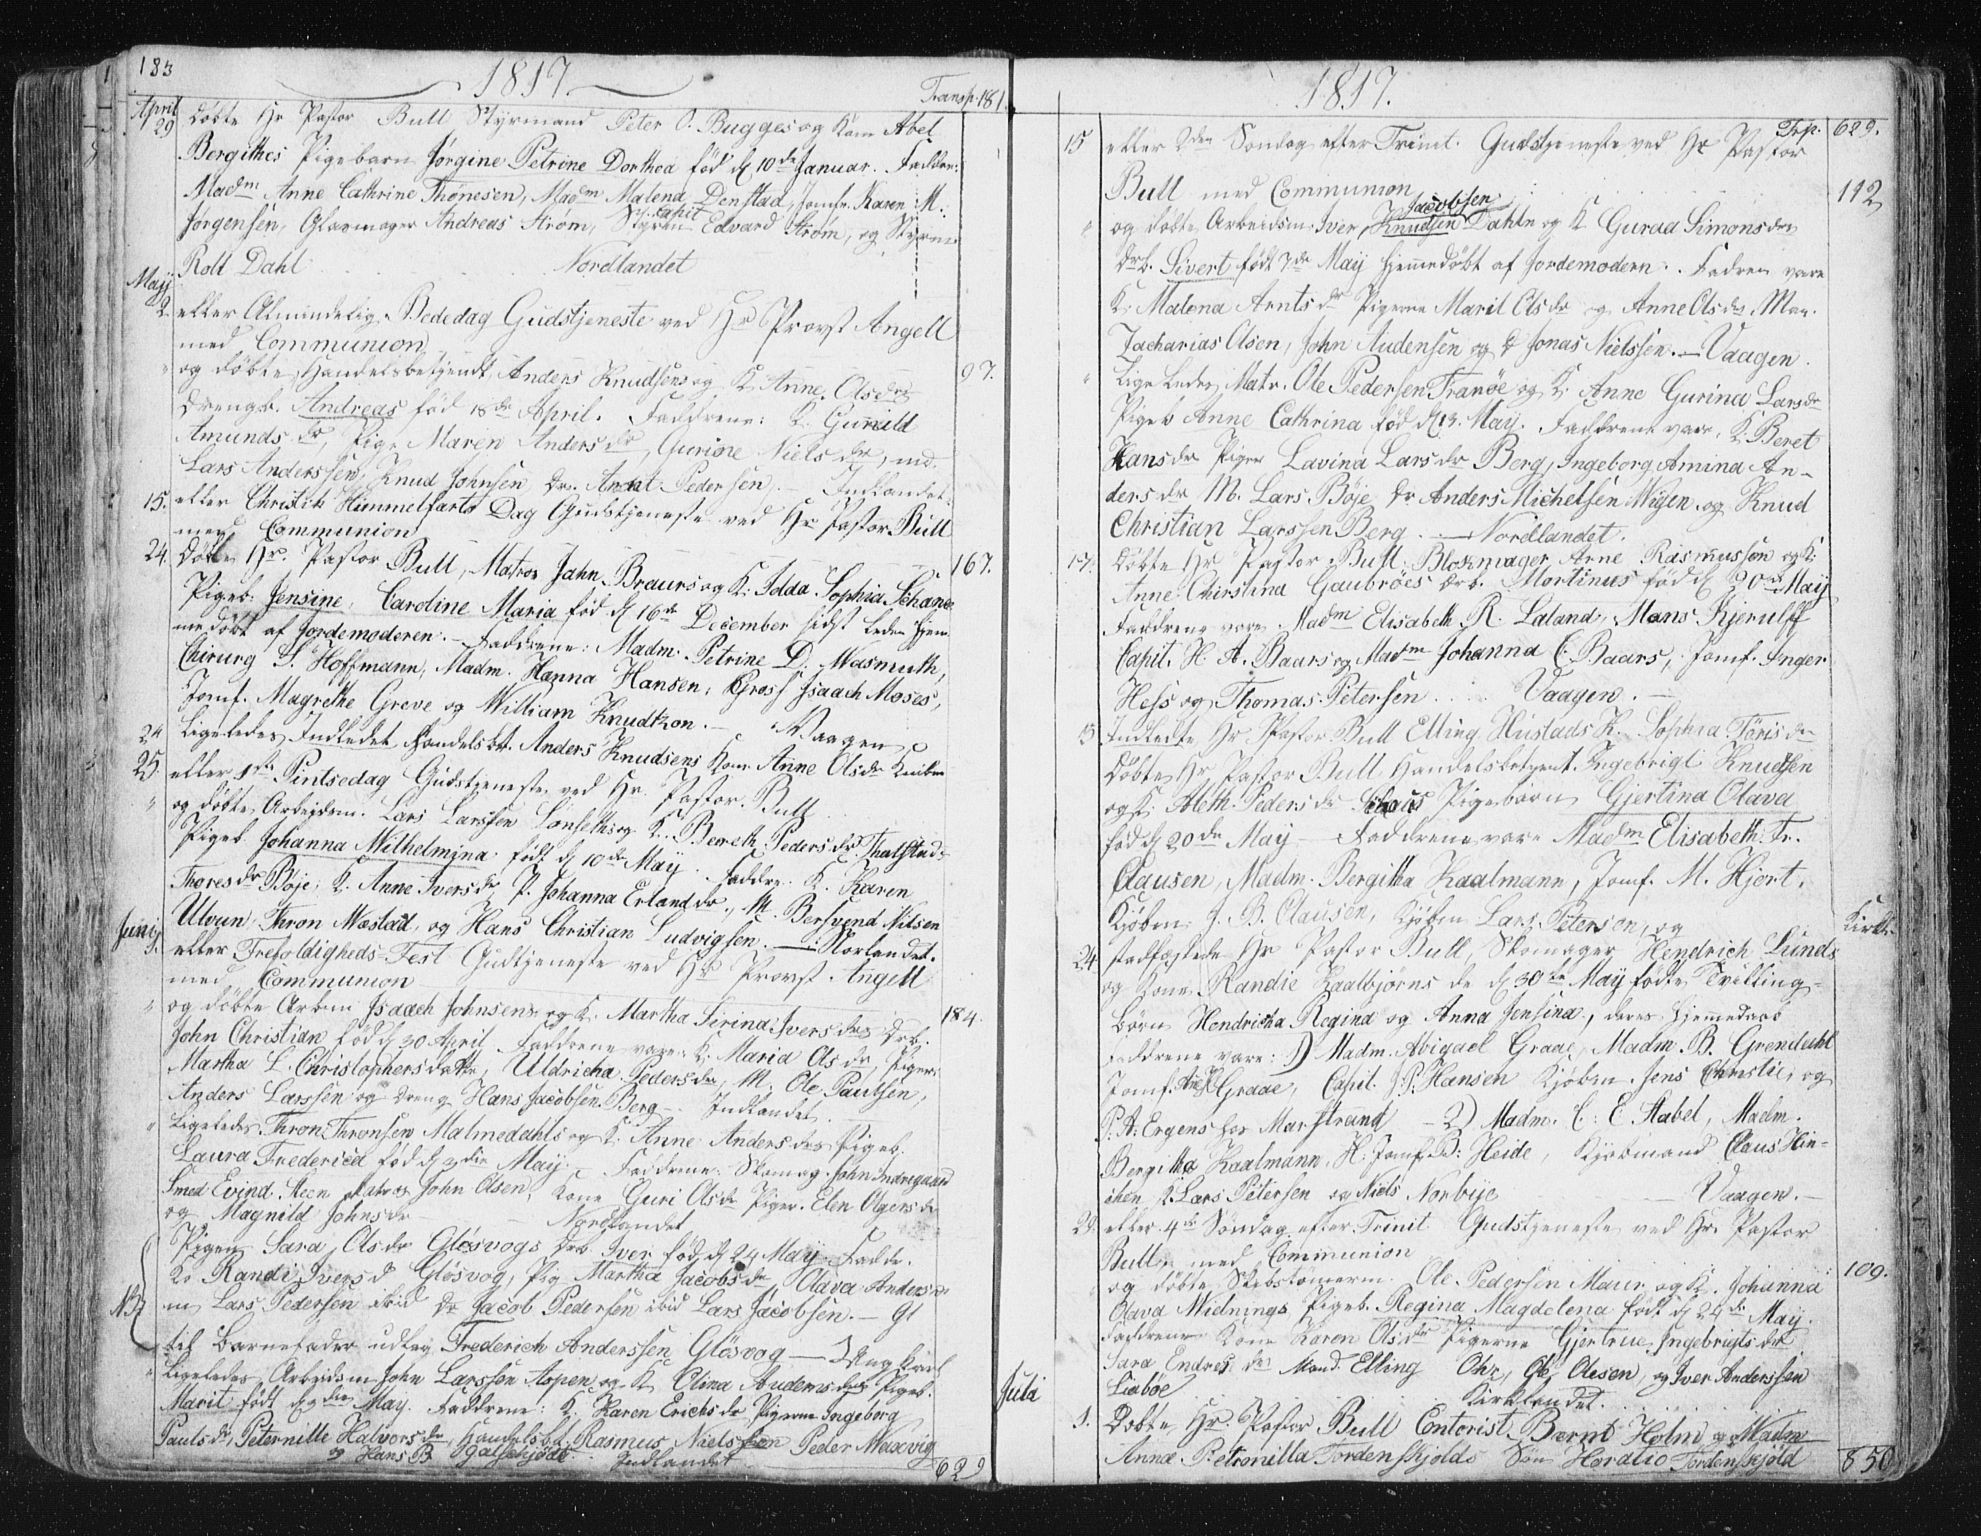 183
1817.
Transp. 181.
April
29
døbte Hr Pastor Bull Styrmand Peter O. Bugges og Kone Abel
Bergithes Pigebarn Jørgine Petrine Dorthea fød d 10de Januar. Faddre:
Madm Anne Cathrine Thønesen, Madm Malena Denstad, Jomfr. Karen M.
Jørgensen, Glasmager Andreas Strøm, Sk. Capit Edvard Strøm, og Styrm
Rolt Dahl Nordlandet
May
2. eller Almindelig Bededag Gudstjeneste ved Hr Provst Angell
med Communion
97.
og døbte Handelsbetjendt Anders Knudsens og K. Anne Olsdrs
Drengeb. Andreas fød 18de April. Faddrene: K. Gunild
Amundsdr, Pige Maren Andersdr, Gurine Nielsdr, md.
Lars Anderssen, Knud Johnsen Dr. Arent Pedersen. Indlandet.
15. eller Christi Himmelfarts Dag Gudstjeneste ved Hr Pastor Bull
med Communion
167.
24. Døbte Hr. Pastor Bull, Matros Jahn Braurs og K. Idda Sophia Schanc
Pigeb. Jensine Caroline Maria fød d 16de December sidst leden hjem
medøbt af Jordemoderen. Faddrene: Madm. Petrine D. Wasmuth,
Chirurg S. Hoffmann, Madm. Hanna Hansen, Gross Isaach Moses,
Jomf. Magrethe Greve og William Knudtzon. Vaagen
24 Ligeledes Indledet Handelsbt. Anders Knudsens Kone Anne Olsdr
25. eller 1ste Pintsedag Gudstjeneste ved Hr. Pastor Bull
" og døbte Arbejdsm. Lars Larssen Lønseths og K. Bereth Pedersdr Thalstad
Pigeb Johanna Wilhelmina født d 10de May. Faddre. K. Karen
Thoresdr Bøje, K. Anne Iversdr, P. Johanna Erlandsdr, M. Bersvend Nilsen
Ulvun, Thron Mæstad, og Hans Christian Ludvigsen. Norlandet.
Junij
1. eller Trefoldigheds-Fest Gudtjeneste ved Hr Provst Angell
med Communion
184.
" og døbte Arbm Isaach Johnsens og K. Martha Sirina Iversdrs Drb.
John Christian fød d 30 April. Faddrene vare: K. Maria Olsdr, Piger:
Martha L. Christophersdatte, Uldricha Pedersdr, M. Ole Paulsen,
Anders Larssen og Dreng Hans Jacobsen Berg. Indlandet.
" Ligeledes Thron Thronsen Malmedahls og K. Anne Andersdrs Pigeb.
Laura Frederica fød d 3die May. Faddrene: Skomag. John Indregaard
Smed Evind Steen Matros John Olsen, Kone Guri Olsdr Piger. Elen Olgersdr
og Magnild Johnsdr Nordlandet
NB
Pigen Sara Olsdr Gløsvogs Drb Iver fød d 24 May. Fadde.
Ko Randi Iversd Gløsvog, Pig Martha Jacobsdr, Olava Andersdr
m Lars Pedersen ibid Dr Jacob Pedersen ibid Lars Jacobsen.
til Barnefader udlag Frederich Anderssen Gløsvog — Ung Karl
" Ligeledes Arbeidsm John Larssen Aspen og K. Olina Audensdrs Pigeb.
Marit født d 9de May. Faddrene: K. Karen Erichsdr Pigerne Ingeborg
Paulsdr, Peternille Halvorsdr, Handelsbt. Rasmus Nielssen Peder Waxvig
og Hans B Indlandet
629

1817.
Trp. 629.
15 eller 2den Søndag efter Trinit. Gudstjeneste ved Hr Pastor
Bull med Communion
112
" og døbte Arbeidsm. Iver Knudsen Jacobsen Dahle og K Guraa Simonsdrs
Drb. Sivert født 7de May hjemmedøbt af Jordemodern. Fadren vare
K. Malena Arntsdr Pigerne Marit Olsdr og Anne Olsdr, Man.
Zacharias Olsen, John Audensen og Dr Jonas Nielssen. — Vaagen.
" Lige Ledes Matr. Ole Pedersen Tranøe og K. Anne Gurina Larsdr
Pigeb Anne Cathrina fød d 13. May. Faddrene vare, K. Beret
Hansdr Piger Lavina Larsdr Berg, Ingeborg Amina An-
dersdr M. Lars Bøje Dr Anders Michelsen Wigen og Knud
Christian Larssen Berg. — Nordlandet.
17. Døbte Hr Pastor Bull Blokmager Arne Rasmusson og K.
Anne Christina Gaubrões Drb. Mortinus fød d 20de May
Faddrene vare Madm Elisabeth R. Laland, Mons Kjerulff
Capit. H. A. Baars og Madm Johanna C. Baars, Jomf. Inger
Hess og Thomas Petersen. Vaagen. —
Indledte Hr. Pastor Bull Elling Hustads K. Sophia Tørisdr
Døbte Hr Pastor Bull Handelsbetjent Ingebrigt Knudtsen
og K. Aleth Pedersdr Pigebarn Gjertina Olava
fød d 20de May — Faddrene vare Madm Elisabeth Fr.
Clausen, Madm. Bergitha Kaalmann, Jomf. M. Hjort,
Kjøbm. J. B. Clausen, Kjøbm Lars Peterson, og
24 stadfæstede Hr Pastor Bull, Skomager Hendrich Lunds
og Kone Randie Kaalbjørns de d 30te May fødte Tvilling-
børn Hendricha Regina og Anna Jensina, deres Hjemedaab
Faddrene vare: 1) Madm. Abigael Graae, Madm. B. Grendahl
Jomf. Graae, Capit. J. P. Hansen Kjøbm. Jens Christie, og
P. A. Ergens hos Marstrand — 2) Madm. C. E. Stabel, Madm.
Bergitha Kaalmann, H. Jomf. D: Heide, Kjøbmand Claus Hin-
ichen K. Lars Petersen og Niels Norbye — Vaagen. —
29. eller 4de Søndag efter Trinit Gudstjeneste ved Hr. Pastor
Bull med Communion
109.
og døbte Skibstømerm. Ole Pedersen Maur og K. Johanna
Olava Widnings Pigeb. Regina Magdelena født d 24de May.
Faddrene Kone Karen Olsdr Pigerne Gjertrue Ingebrigtsdr
Sara Endresdr Mand. Elling Ole Olesen, og Iver Anderssen
Liabøe Kirklandet.
Juli
1. Døbte Hr. Pastor Bull Contorist Bernt Holm og Madm
Anne Petronilla Tordenskjolds Søn Horatio Tordenskjold
850